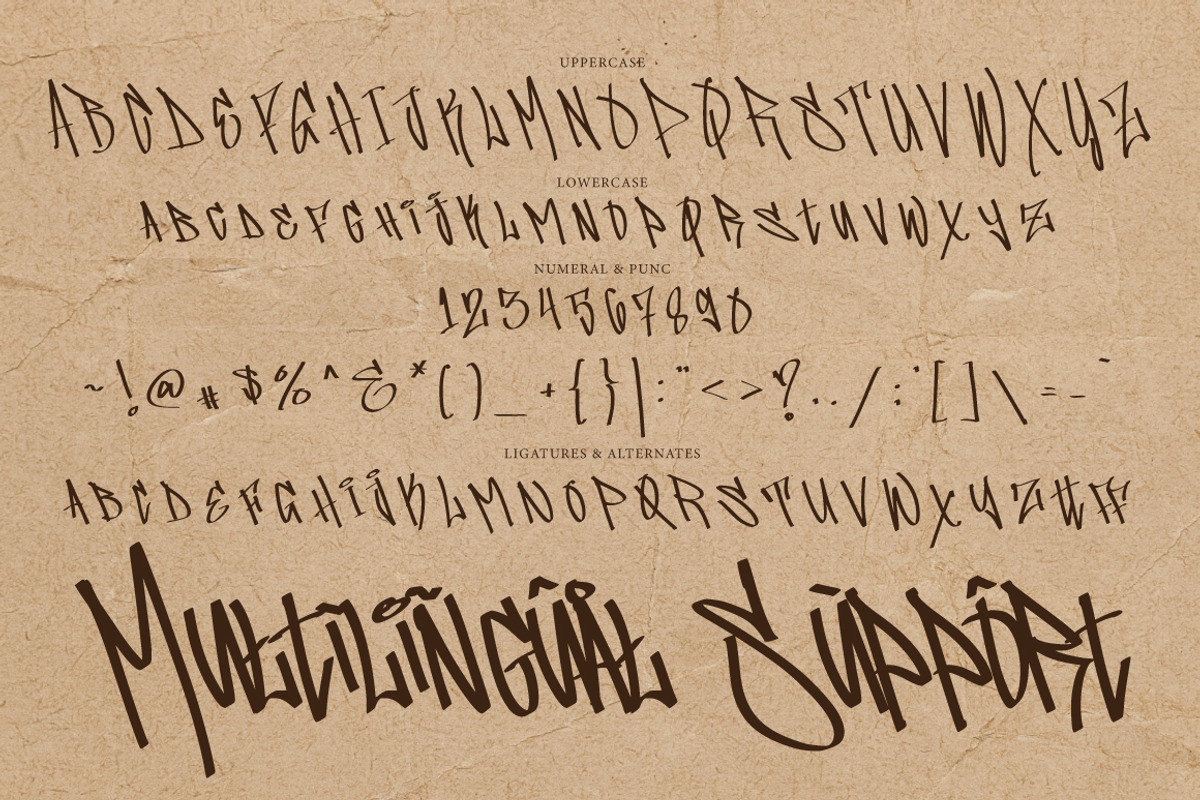 UPPERCASE
A B C D E F G H I J K L M N O P Q R S T U V W X Y Z
LOWERCASE
A B C D E F G H i j K L M N O P Q R S t U V W X Y Z
NUMERAL & PUNC
1 2 3 4 5 6 7 8 9 0
~ ! @ # $ % ^ & * ( ) _ + { } | : " < > ? . . / ; ' [ ] \ = - ~
LIGATURES & ALTERNATES
A B C D E F G H i j K L M N O P Q R S T U V W X Y Z tt FF
MULtìLiÑGÛÅL SÙPPÔRt